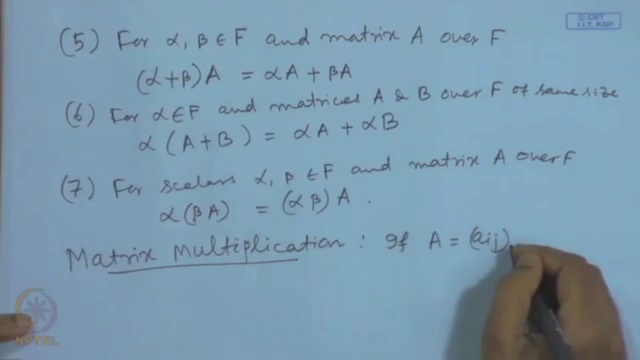 © CET
I.I.T. KGP
(5) For α, β ∈ F and matrix A over F
(α+β)A = αA + βA
(6) For α∈F and matrices A & B over F of same size
α (A+B) = αA + αB
(7) For scalars α, β ∈ F and matrix A over F
α(βA) = (αβ)A .
Matrix Multiplication : If A = (aij)
NPTEL